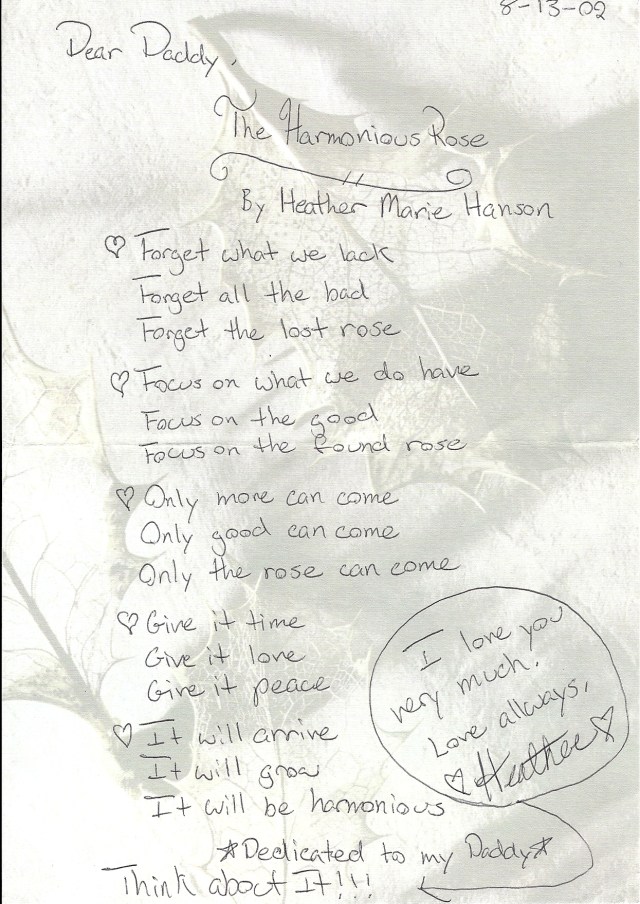 8-13-02
Dear Daddy,
The Harmonious Rose
By Heather Marie Hanson
♡ Forget what we lack
Forget all the bad
Forget the lost rose
♡ Focus on what we do have
Focus on the good
Focus on the found rose
♡ Only more can come
Only good can come
Only the rose can come
♡ Give it time
Give it love
Give it peace
♡ It will arrive
It will grow
It will be harmonious
I love you
very much.
Love allways,
♡ Heather ♡
*Dedicated to my Daddy*
Think about It!!!